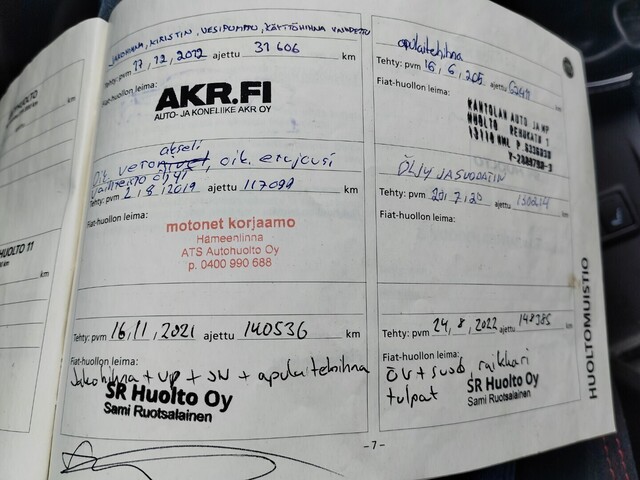 HUOLTO
km
HUOLTO 11
km
JAKOHIHNA, KIRISTIN, VESIPUMPPU, KÄYTTÖHIHNA VAIHDETTU
Tehty: pvm 17, 12, 2012 ajettu 31 606 km
Fiat-huollon leima:
AKR.FI
AUTO- JA KONELIIKE AKR OY
akseli
Oik. vetonivel, oik. etujousi
Tehty: pvm 2, 8, 2019 ajettu 117099 km
Fiat-huollon leima:
motonet korjaamo
Hämeenlinna
ATS Autohuolto Oy
p. 0400 990 688
Tehty: pvm 16, 11, 2021 ajettu 140536 km
Fiat-huollon leima:
Jakohihna + VP + + apulaitehihna
SR Huolto Oy
Sami Ruotsalainen
apulaitehihna
Tehty: pvm 16, 6, ajettu km
Fiat-huollon leima:
KANTOLAN AUTO JA MP
HUOLTO
13110 HML P.
ÖLJY JA SUODATIN
Tehty: pvm ajettu km
Fiat-huollon leima:
Tehty: pvm 24, 8, 2022 ajettu 148385 km
Fiat-huollon leima:
ÖV + suod, raikkari
tulpat
SR Huolto Oy
Sami Ruotsalainen
HUOLTOMUISTIO
- 7 -